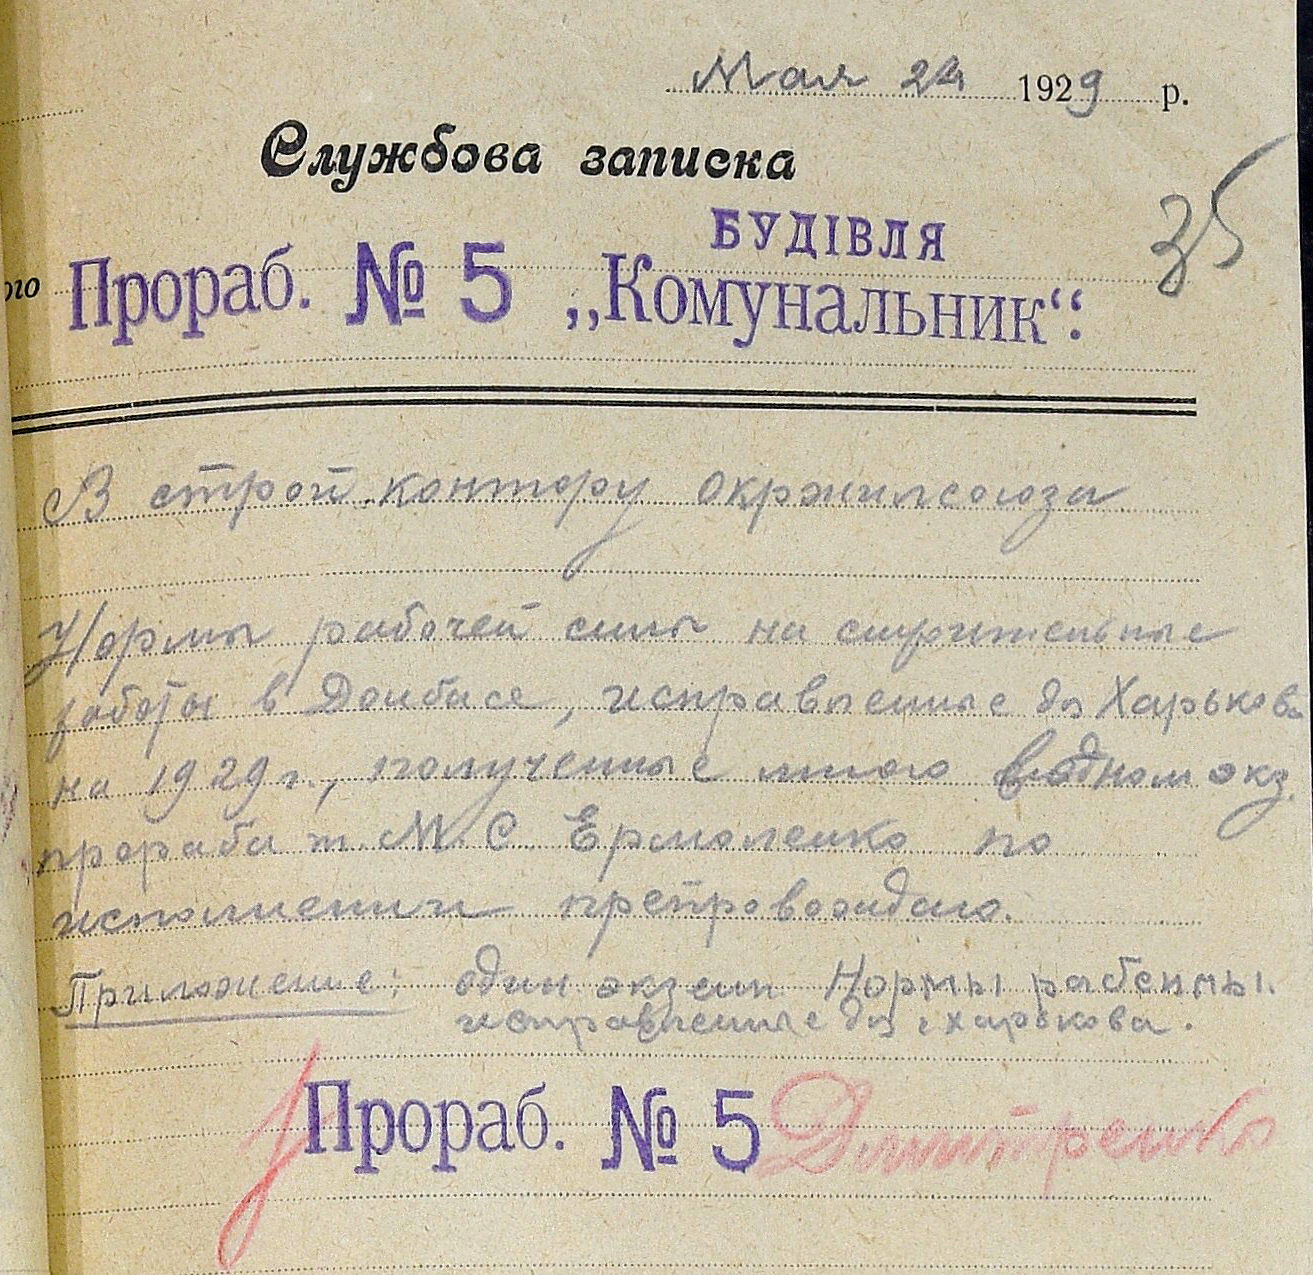 Мая 24 1929 р.
Службова записка
35
БУДІВЛЯ
ого Прораб. № 5 „Комунальник“:
В строй контору Окржилсоюза
Нормы рабочей силы на строительные
работы в Донбасе, исправленные для Харькова
на 1929 г., полученные мною в одном экз.
прораба т. М. С Ермоленко по
исполнении препровождаю.
Приложение: один экземп Нормы рабсилы.
исправленные для г Харькова.
Прораб. № 5 Дмитренко